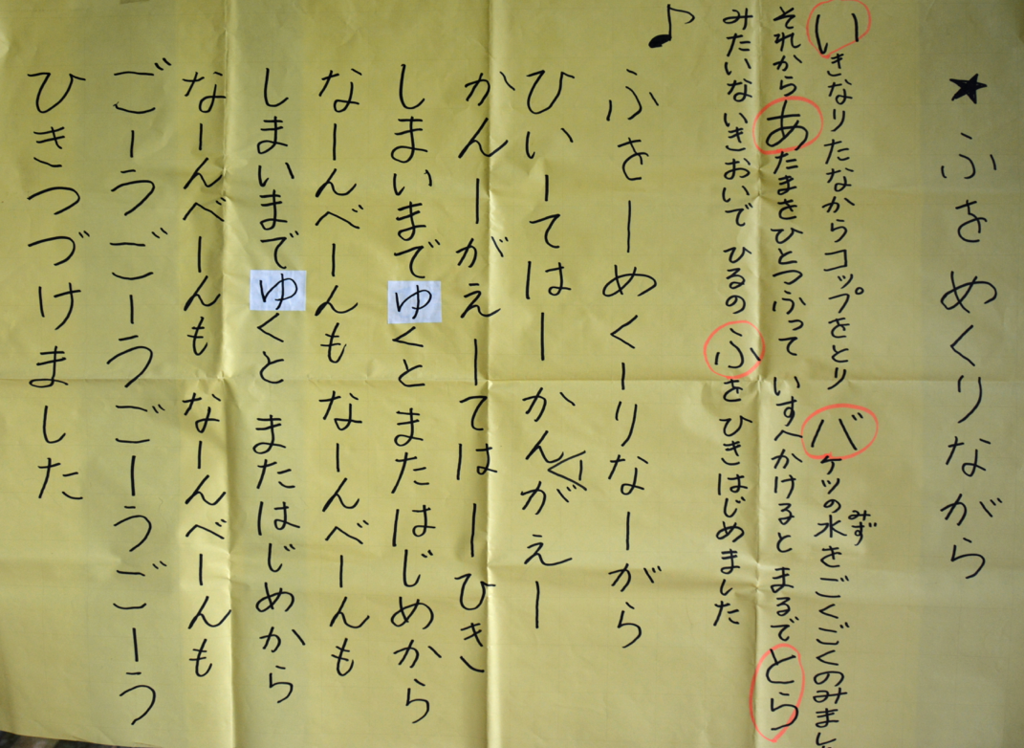 ★ふをめくりながら
いきなりたなからコップをとり バケツの水をごくごくのみまし
みず
それからあたまをひとつふって いすへかけると まるでとら
みたいな いきおいで ひるの ふを ひきはじめました
♪
ふをーめくーりなーがら
ひいーてはーかんがえー
かんーがえーてはーひき
しまいまでゆくと またはじめから
なーんべーんも なーんべーんも
しまいまでゆくと またはじめから
なーんべーんも なーんべーんも
ごーうごーうごーうごーう
ひきつづけました